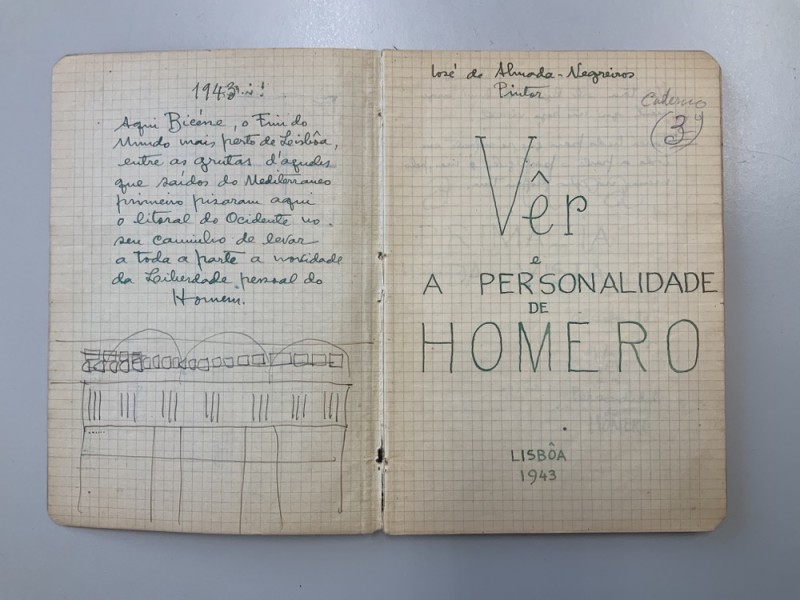 1943
Aqui Bicêne, o Fim do
Mundo mais perto de Leisbôa,
entre as grutas d'aqueles
que saídos do Mediterraneo
primeiro pisaram aqui
o litoral do Ocidente no
seu caminho de levar
a toda a parte a novidade
da Leiberdade pessoal do
Homem.
José de Almada-Negreiros
Pintor
Caderno
3
Vêr
e
A PERSONALIDADE
DE
HOMERO
LISBÔA
1943